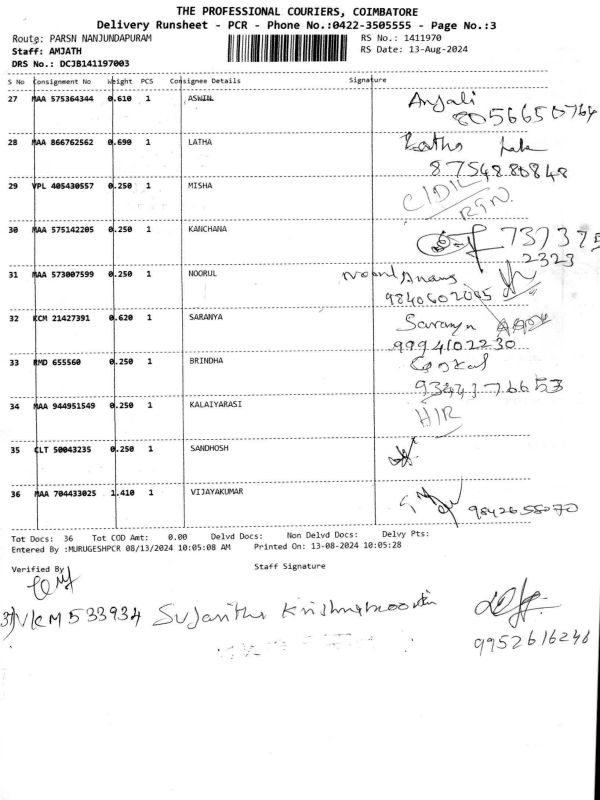 THE PROFESSIONAL COURIERS, COIMBATORE
Delivery Runsheet - PCR - Phone No.:0422-3505555 - Page No.:3
Route: PARSN NANJUNDAPURAM RS No.: 1411970
Staff: AMJATH RS Date: 13-Aug-2024
DRS No.: DCJB141197003
S No Consignment No Weight PCS Consignee Details Signature
27 MAA 575364344 0.610 1 ASWIN Anjali
8056650764
28 MAA 866762562 0.690 1 LATHA Latha
8754880848
29 VPL 405430557 0.250 1 MISHA
RTN.
30 MAA 575142205 0.250 1 KANCHANA 737375
2323
31 MAA 573007599 0.250 1 NOORUL Noorul
9840602005
32 KCM 21427391 0.620 1 SARANYA Saranya
9994102230
33 RMD 655560 0.250 1 BRINDHA Gokul
9344376653
34 MAA 944951549 0.250 1 KALAIYARASI H/R
35 CLT 50043235 0.250 1 SANDHOSH
36 MAA 704433025 1.410 1 VIJAYAKUMAR 9842658070
Tot Docs: 36 Tot COD Amt: 0.00 Delvd Docs: Non Delvd Docs: Delvy Pts:
Entered By :MURUGESHPCR 08/13/2024 10:05:08 AM Printed On: 13-08-2024 10:05:28
Verified By Staff Signature
37) VKM 533934 Sujantha Krishnamoorthi
9952616246